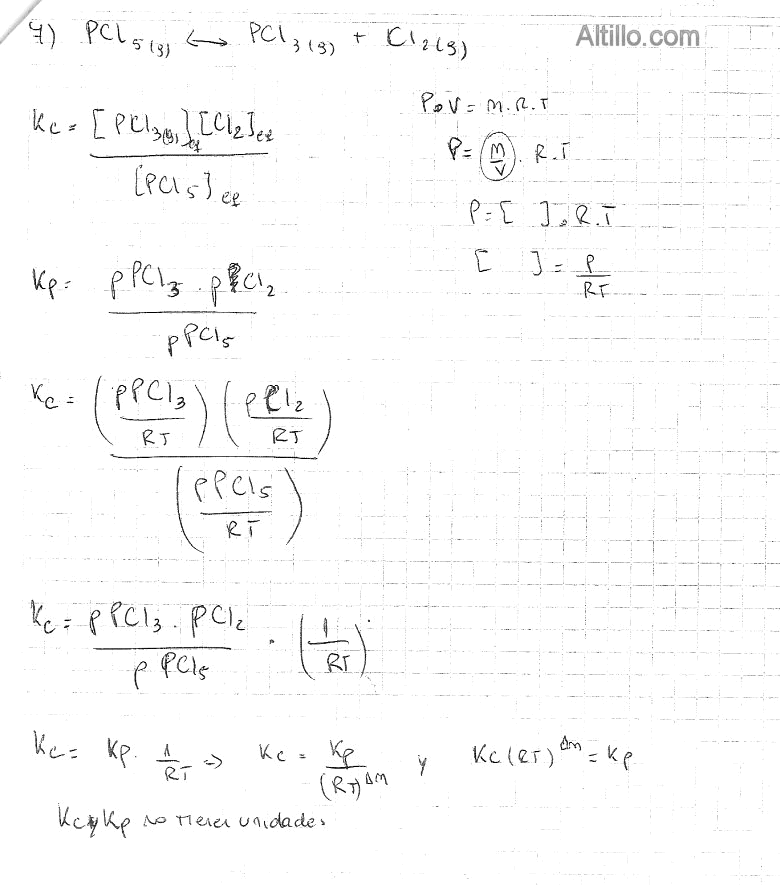 4) PCl5(g) ↔ PCl3(g) + Cl2(g)
Altillo.com
Kc = [PCl3(g)]eq [Cl2]eq
[PCl5]eq
P.V = n.R.T
P = (n/V) . R.T
P = [ ] . R.T
[ ] = P/RT
Kp = pPCl3 . pCl2
pPCl5
Kc = (pPCl3/RT) (pCl2/RT)
(pPCl5/RT)
Kc = pPCl3 . pCl2 . (1/RT)
pPCl5
Kc = Kp . 1/RT => Kc = Kp/(RT)^Δn y Kc(RT)^Δn = Kp
Kc y Kp no tienen unidades.